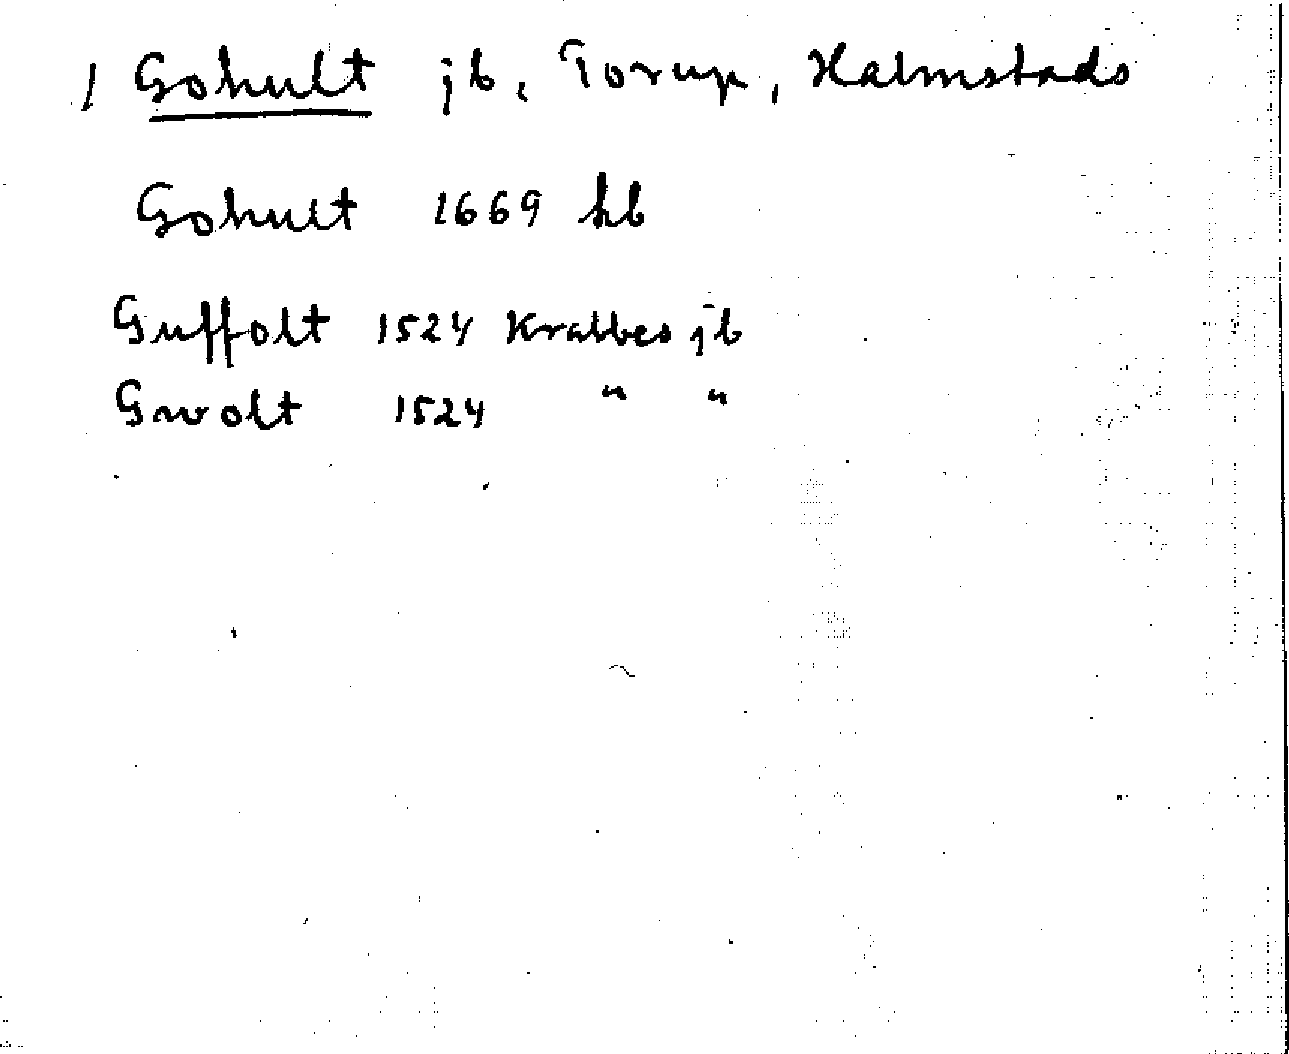 1 Gohult jb, Torup, Halmstads
Gohult 1669 hb
Guffolt 1524 Krabbes jb
Gwolt 1524 " "